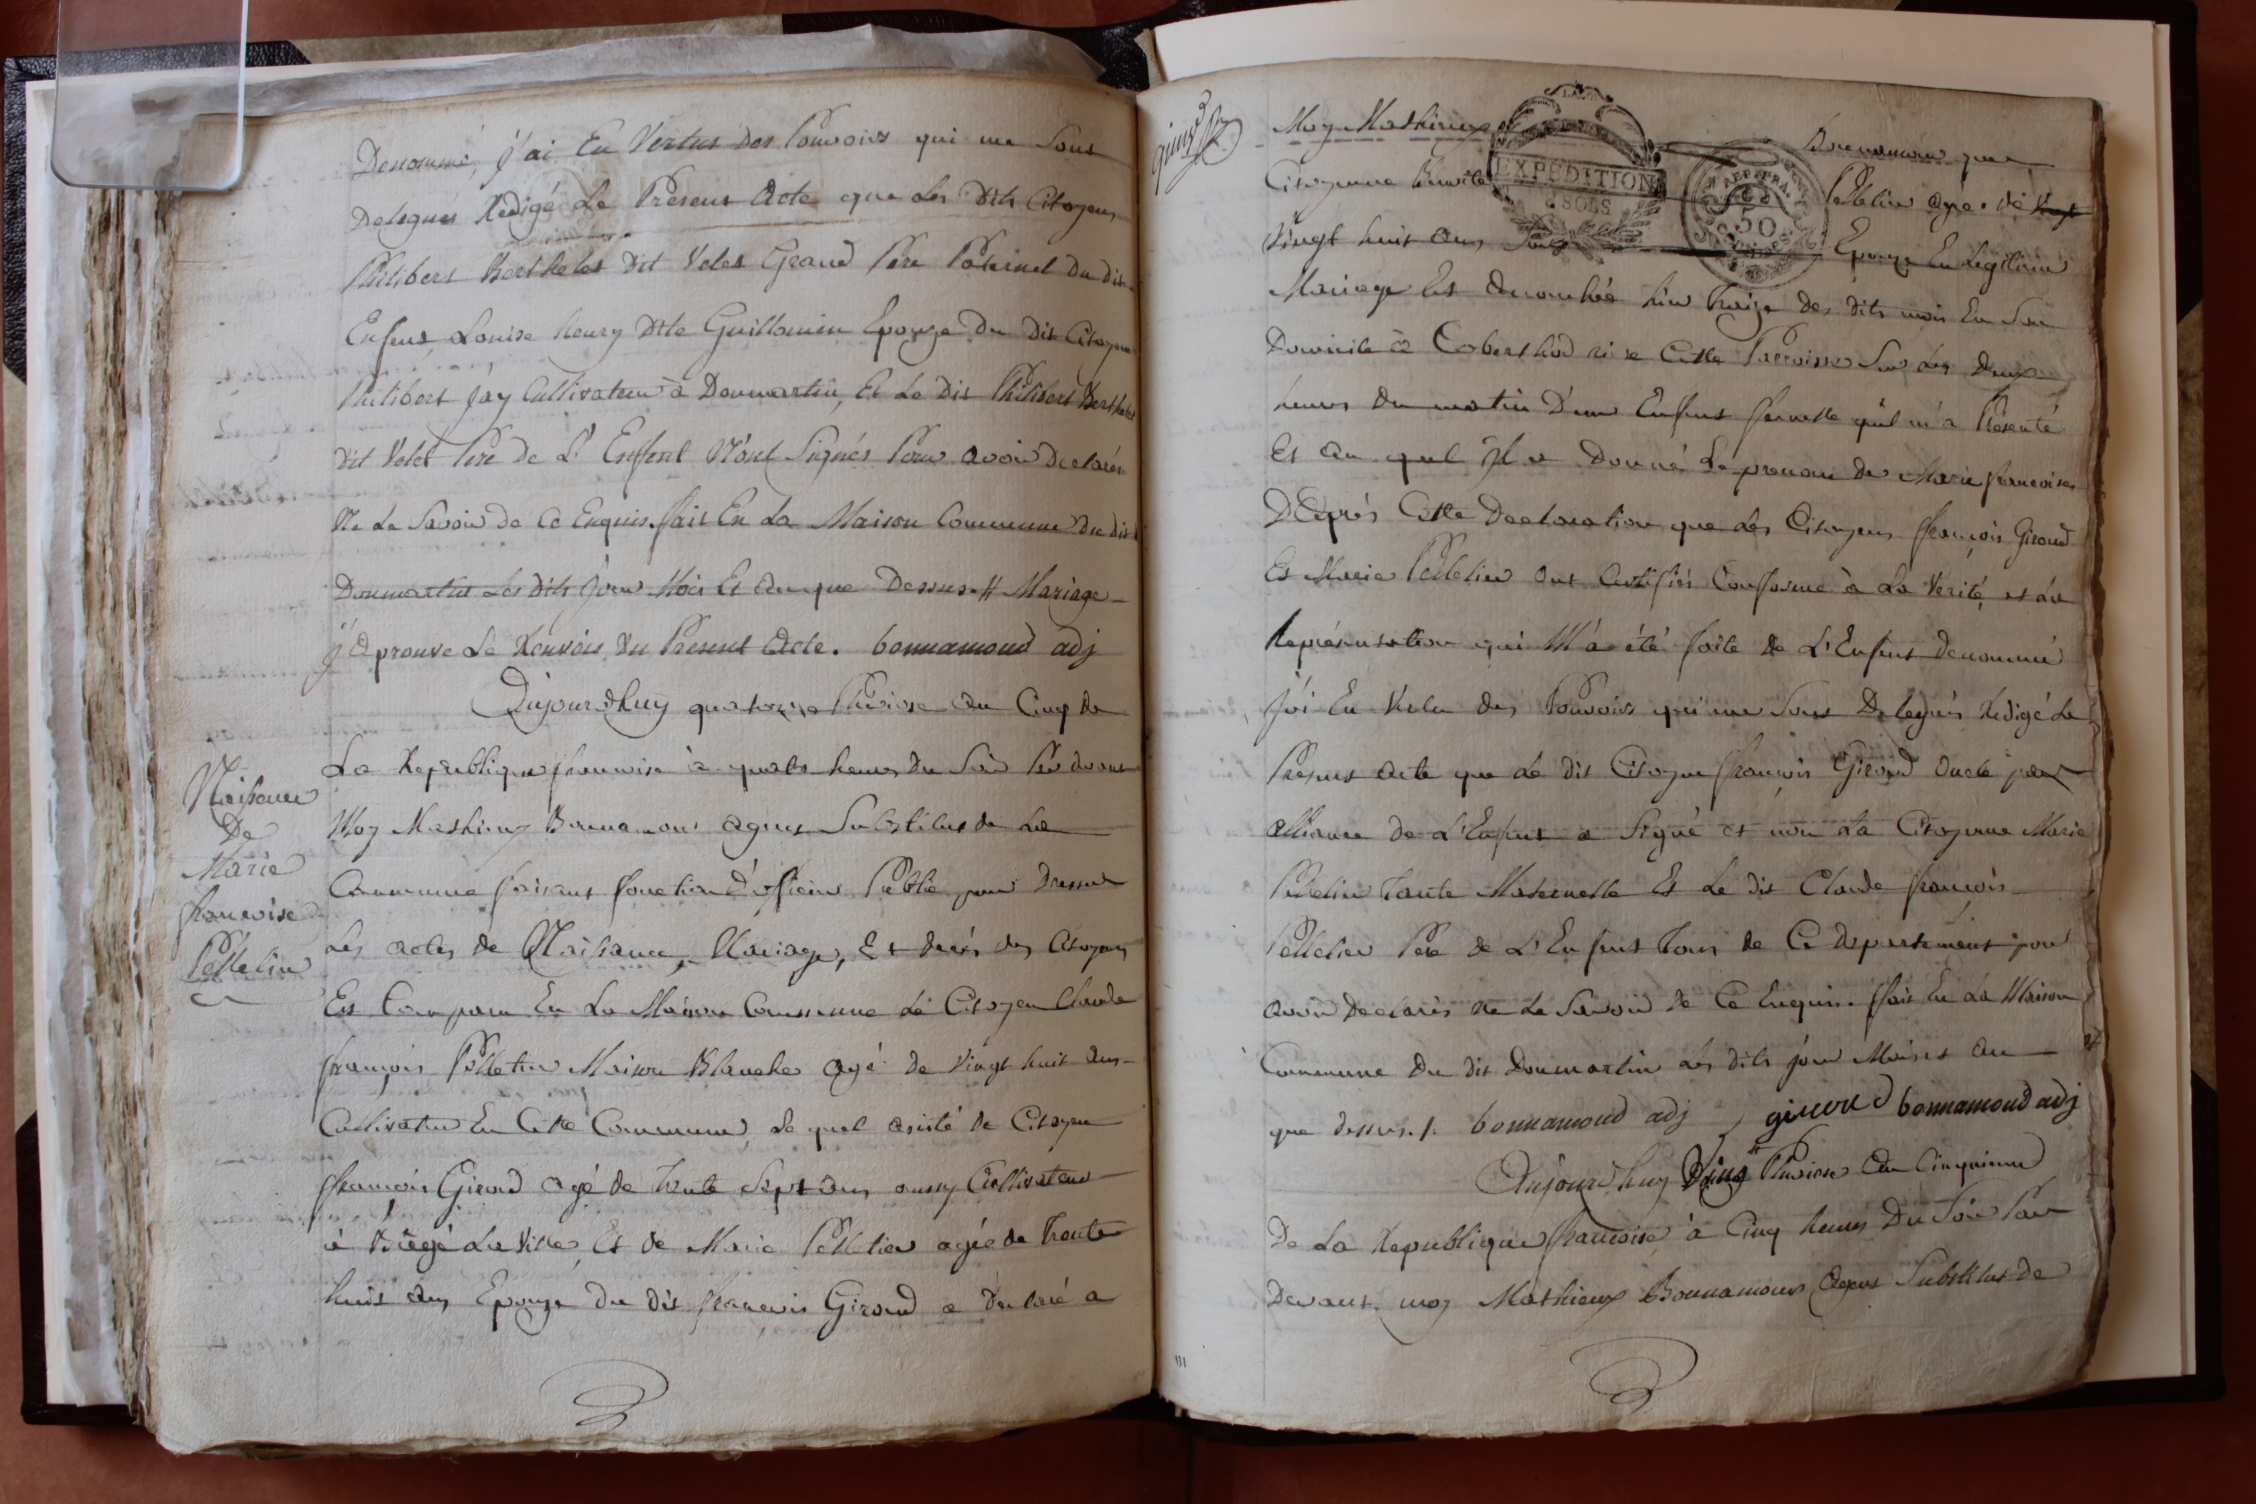 Denommé, j'ai En Vertus des Pouvoirs qui me Sont
Delegués Redigé Le Present Acte que Les Dits Citoyens
Philibert Berthelet Dit Velet Grand Pere Paternel Du dit
Enfent, Louise henry dite Guillomin Epouze Du Dit Citoyen
Philibert Jay Cultivateur à Donmartin, Et Le Dit Philibert Berthelet
dit Velet Pere De L'Enfent N'ont Signés Pour avoir Declarés
Ne Le Savoir de Ce Enquis. fait En La Maison Commune Du dit
Donmartin Les Dits jour Mois Et An que Dessus # Mariage
j'aprouve Le Renvois du Present Acte. bonnamoud adj
Aujourd'huy quatorze Pluviose an Cinq de
La Republique francoise à quatre heures Du Soir Par devant
Moy Mathieux Bonnamour agent Substitut de La
Commune faisant fonction d'officier Public pour Dresser
Les actes de Naissance, Mariage, Et decés des Citoyens
Est Comparu En La Maison Commune Le Citoyen Claude
françois Pelletier Maison Blanche agé de Vingt huit ans
Cultivateur En Cette Commune, Le quel assisté de Citoyen
françois Giroud agé de trente Sept ans aussy Cultivateur
à La Ville, Et de Marie Pelletier agée de trente
huit ans Epouze Du Dit francois Giroud a Declaré a
Naissance
De
Marie
francoise
Pelletier
Moy Mathieux Bonnamour que
Citoyenne Benoite Pelletier agée de
Vingt huit ans Son Epouze En Legitime
Mariage Est accouchée hier traize des dits mois En Son
Domicile à Cette Parroisse Sur Les Deux
heures Du matin D'une Enfent femelle qu'il m'a Présenté
Et Au quel Il a Donné Le prenom de Marie francoise
D'Après Cette Declaration que Les Citoyens françois Giroud
Et Marie Pelletier ont Certifiés Conforme à La Verité, et à la
Représentation qui M'a été faite de L'Enfent denommé
J'ai En Vertu des Pouvoirs qui me Sont Delegués Redigé Le
Present acte que Le dit Citoyen françois Giroud Oncle par
alliance de L'Enfent a Signé et non La Citoyenne Marie
Pelletier Tante Maternelle Et Le dit Claude françois
Pelletier Pere de L'Enfent Tous de Ce departement pour
avoir Declarés Ne Le Savoir de Ce Enquis. fait En La Maison
Commune Du dit Donmartin Les dits jour Mois et An
que dessus ./. bonnamoud adj giroud bonnamoud adj
Aujourd'huy Pluviose An Cinquieme
De La Republique francoise, à Cinq heures Du Soir Par
Devant moy Mathieux Bonnamour Agent Substitut de
EXPEDITION
SOLS
REP. FRA.
50